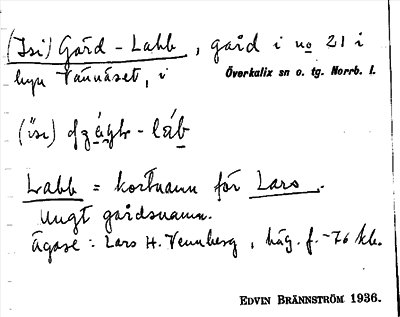 (Isi) Gård-Labb, gård i no 21 i
byn Vännäset, i Överkalix sn o. tg. Norrb. l.
Labb = kortnamn för Lars.
Ungt gårdsnamn.
Ägare: Lars H. Vennberg, häg. f. -76 kb.
EDVIN BRÄNNSTRÖM 1936.